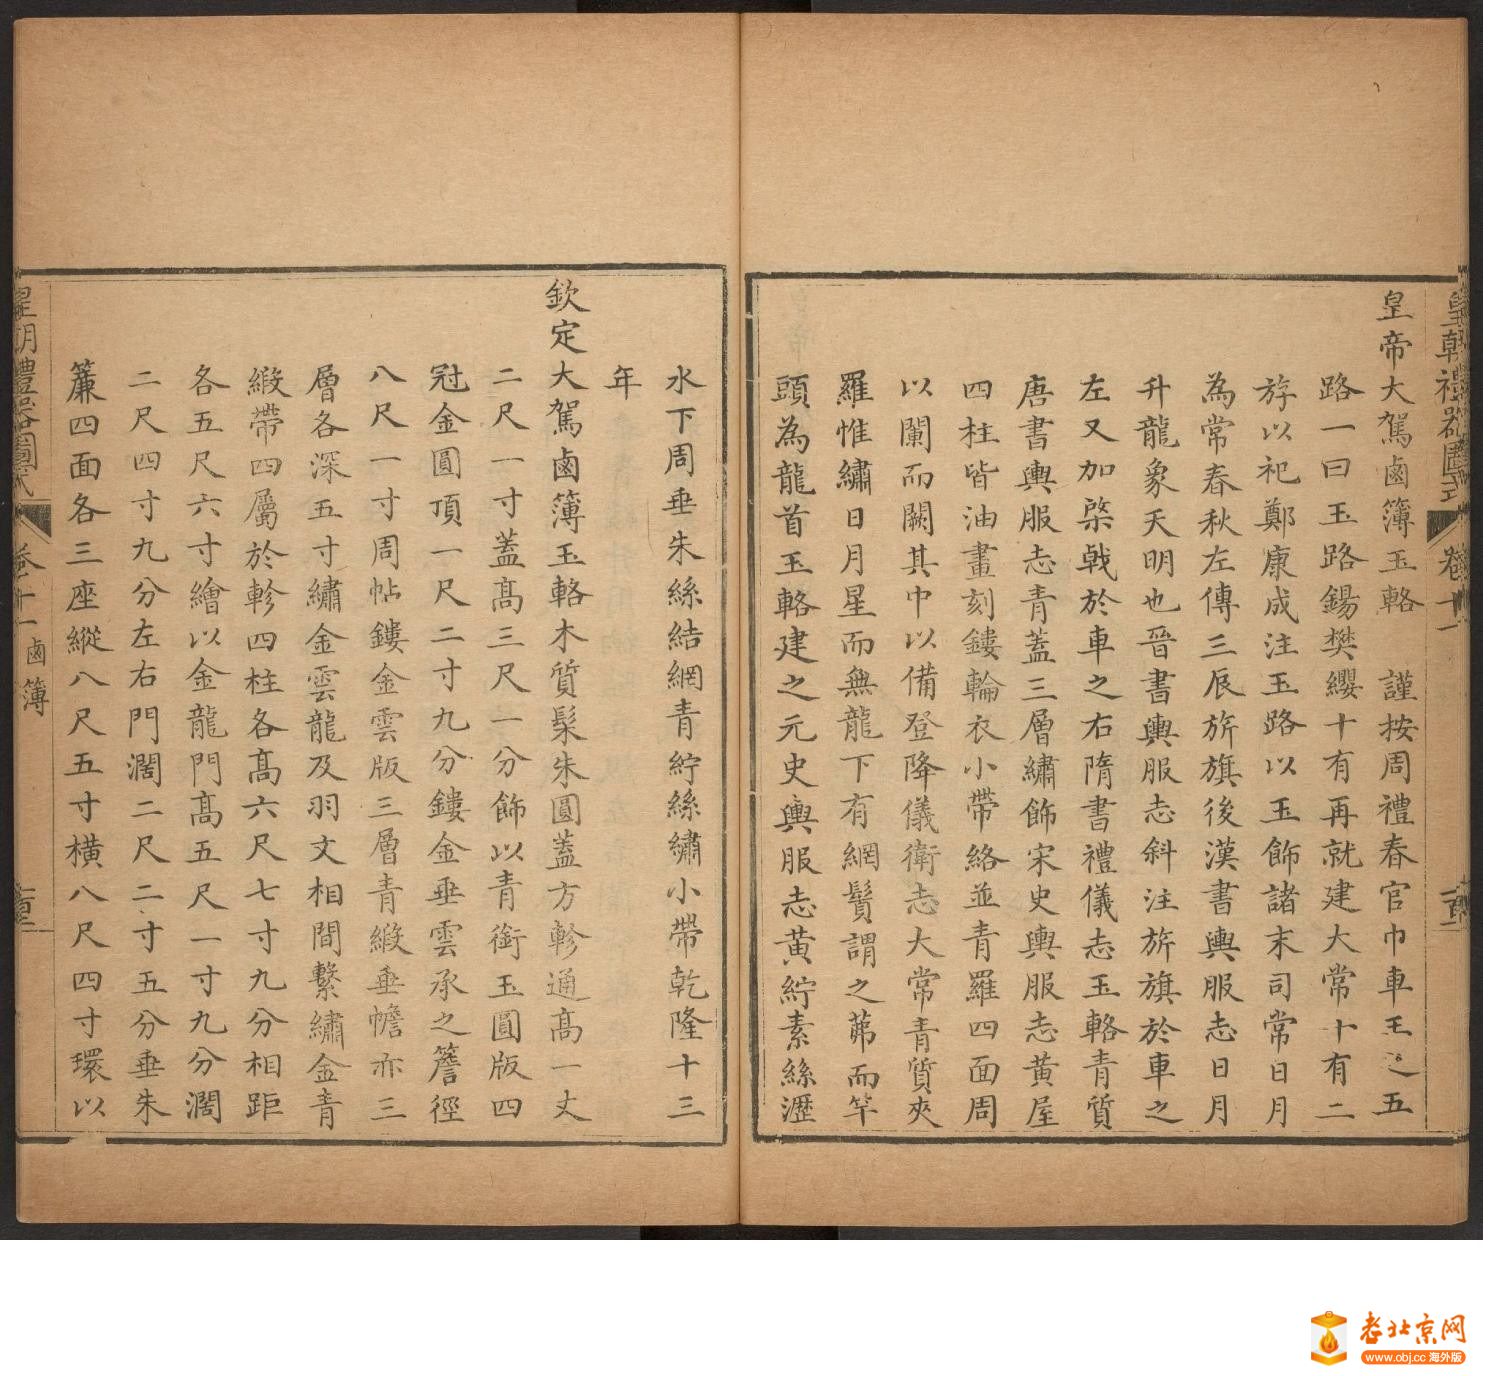 皇朝禮器圖式 卷十一
皇帝大駕鹵簿玉輅 謹按周禮春官巾車王之五
路一曰玉路鍚樊纓十有再就建大常十有二
斿以祀鄭康成注玉路以玉飾諸末司常日月
為常春秋左傳三辰旂旗後漢書輿服志日月
升龍象天明也晉書輿服志斜注旂旗於車之
左又加棨戟於車之右隋書禮儀志玉輅青質
唐書輿服志青蓋三層繡飾宋史輿服志黃屋
四柱皆油畫刻鏤輪衣小帶絡並青羅四面周
以闌而闕其中以備登降儀衛志大常青質夾
羅惟繡日月星而無龍下有網鬢謂之茀而竿
頭為龍首玉輅建之元史輿服志黃紵素絲瀝
水下周垂朱絲結網青紵絲繡小帶乾隆十三
年
欽定大駕鹵簿玉輅木質髤朱圓蓋方軫通高一丈
二尺一寸蓋高三尺一分飾以青銜玉圓版四
冠金圓頂一尺二寸九分鏤金垂雲承之簷徑
八尺一寸周帖鏤金雲版三層青緞垂幨亦三
層各深五寸繡金雲龍及羽文相間繫繡金青
緞帶四屬於軫四柱各高六尺七寸九分相距
各五尺六寸繪以金龍門高五尺一寸九分濶
二尺四寸九分左右門濶二尺二寸五分垂朱
簾四面各三座縱八尺五寸橫八尺四寸環以
皇朝禮器圖式 卷十一 鹵簿
老北京网
www.obj.cc 海外版